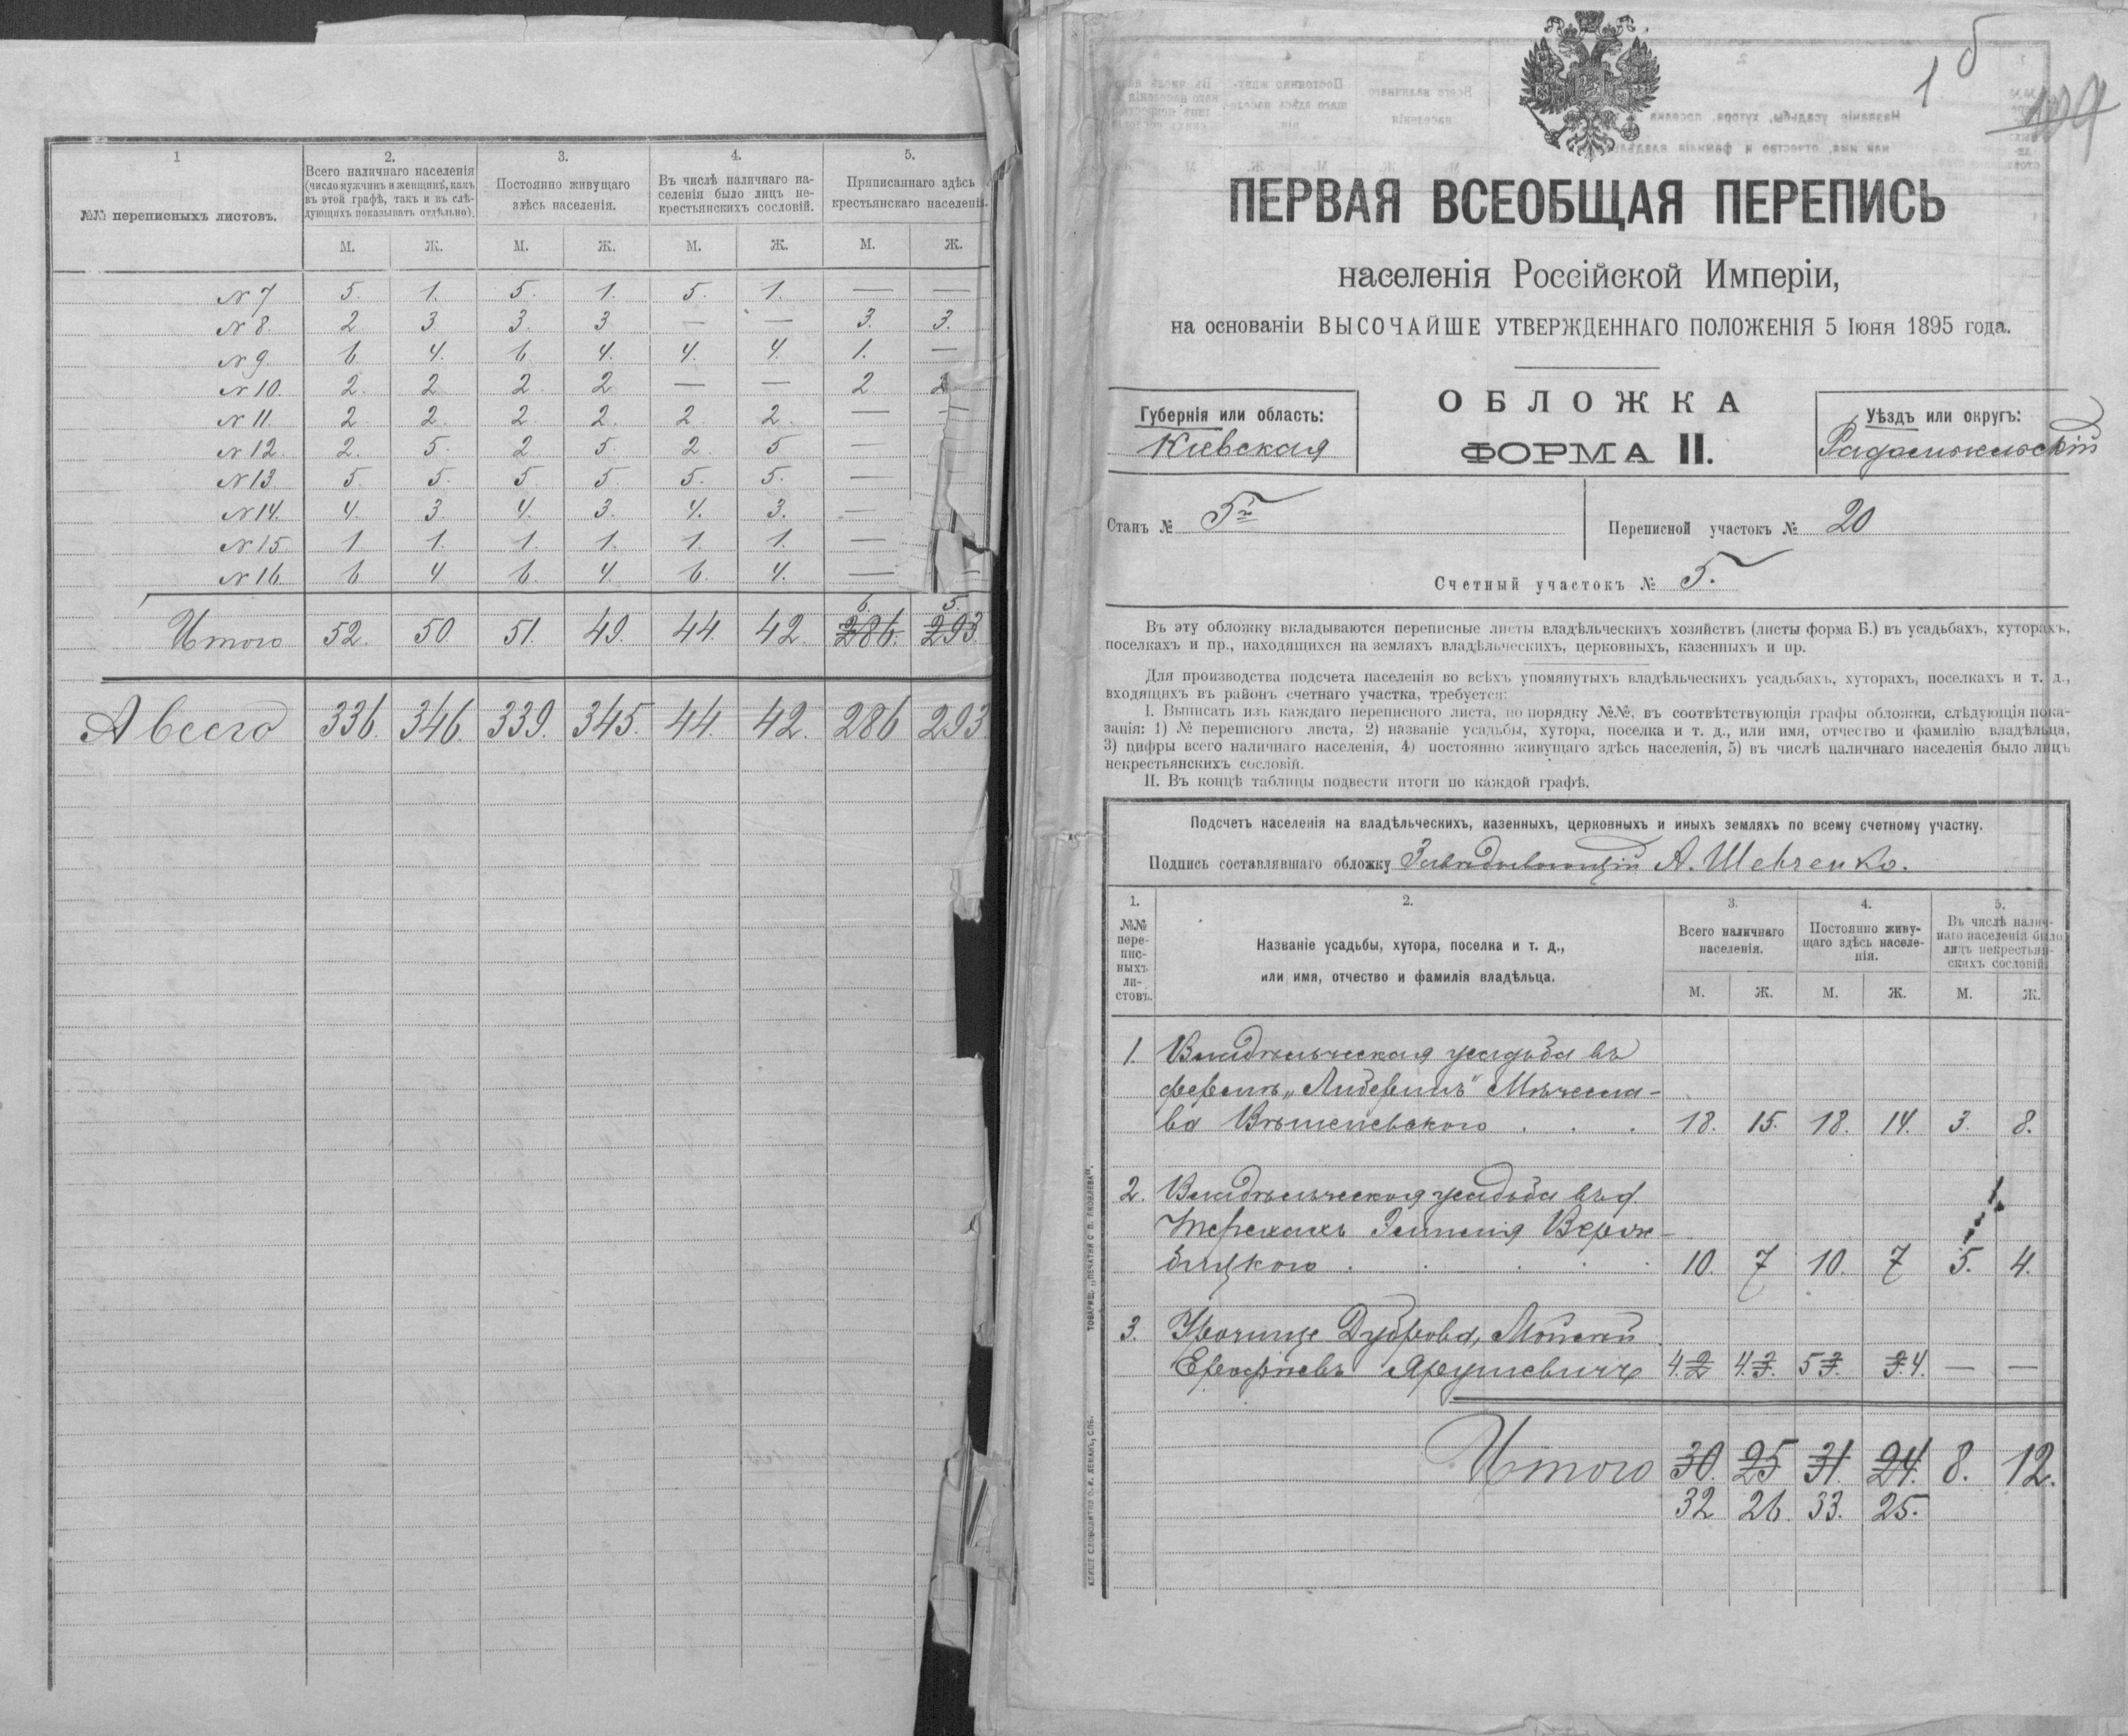 1
2.
3.
4.
5.
№№ переписныхъ листовъ.
Всего наличнаго населенія
(число мужчинъ и женщинъ, какъ
въ этой графѣ, такъ и въ слѣ-
дующихъ показывать отдѣльно).
Постоянно живущаго
здѣсь населенія.
Въ числѣ наличнаго на-
селенія было лицъ не-
крестьянскихъ сословій.
Приписаннаго здѣсь
крестьянскаго населенія.
М. Ж. М. Ж. М. Ж. М. Ж.
№ 7 5. 1. 5. 1. 5. 1. — —
№ 8. 2 3. 3. 3 — — 3. 3.
№ 9. 6. 4. 6. 4. 4. 4. 1. —
№ 10. 2. 2 2. 2 — — 2 2
№ 11. 2 2. 2. 2. 2 2. —
№ 12. 2. 5. 2 5. 2. 5 —
№ 13 5. 5. 5 5. 5. 5. —
№ 14. 4. 3. 4. 3. 4. 3. —
№ 15. 1 1. 1. 1. 1. 1. —
№ 16. 6 4 6. 4. 6. 4. — —
6. 5.
Итого 52. 50. 51. 49. 44. 42. 286. 293.
А всего 336. 346. 339. 345. 44. 42. 286 293
1 б
109
ПЕРВАЯ ВСЕОБЩАЯ ПЕРЕПИСЬ
населенія Россійской Имперіи,
на основаніи ВЫСОЧАЙШЕ УТВЕРЖДЕННАГО ПОЛОЖЕНІЯ 5 Іюня 1895 года.
Губернія или область:
Кіевская
ОБЛОЖКА
ФОРМА II.
Уѣздъ или округъ:
Радомысльскій
Станъ № 5й
Переписной участокъ № 20
Счетный участокъ № 5.
Въ эту обложку вкладываются переписные листы владѣльческихъ хозяйствъ (листы форма Б.) въ усадьбахъ, хуторахъ,
поселкахъ и пр., находящихся на земляхъ владѣльческихъ, церковныхъ, казенныхъ и пр.
Для производства подсчета населенія во всѣхъ упомянутыхъ владѣльческихъ усадьбахъ, хуторахъ, поселкахъ и т. д.,
входящихъ въ районъ счетнаго участка, требуется:
I. Выписать изъ каждаго переписного листа, по порядку №№, въ соотвѣтствующія графы обложки, слѣдующія пока-
занія: 1) № переписного листа, 2) названіе усадьбы, хутора, поселка и т. д., или имя, отчество и фамилію владѣльца,
3) цифры всего наличнаго населенія, 4) постоянно живущаго здѣсь населенія, 5) въ числѣ наличнаго населенія было лицъ
некрестьянскихъ сословій.
II. Въ концѣ таблицы подвести итоги по каждой графѣ.
Подсчетъ населенія на владѣльческихъ, казенныхъ, церковныхъ и иныхъ земляхъ по всему счетному участку.
Подпись составлявшаго обложку Завѣдывающій А. Шевченко.
1.
2.
3.
4.
5.
№№
пере-
пис-
ныхъ
ли-
стовъ.
Названіе усадьбы, хутора, поселка и т. д.,
или имя, отчество и фамилія владѣльца.
Всего наличнаго
населенія.
Постоянно живу-
щаго здѣсь населе-
нія.
Въ числѣ налич-
наго населенія было
лицъ некрестьян-
скихъ сословій.
М. Ж. М. Ж. М. Ж.
1. Владѣльческая усадьба въ
Мѣчесла-
ва 18. 15. 18. 14. 3. 8.
2. Владѣльческая усадьба въ д.
10. 7 10. 7 5. 4.
3. Урочище Дуброва, Моисей
Ерофѣевъ Ярушевичъ 4. 2 4. 3. 5 3. 3. 4. — —
Итого 30. 25 31. 24. 8. 12.
32 26. 33. 25.
ТОВАРИЩ. „ПЕЧАТНЯ С. П. ЯКОВЛЕВА".
КЛИШЕ СЛОВОЛИТНИ О. И. ЛЕМАНЪ, СПБ.